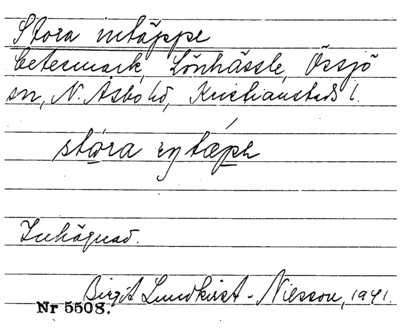 Stora intäppe
betesmark, Lönhässle, Örsjö
sn, N. Åsbo hd, Kristianstads l.
stóra ıȷ tǽph
Inhägnad.
Birgit Lundkvist-Nilsson, 1941.
Nr 5508.